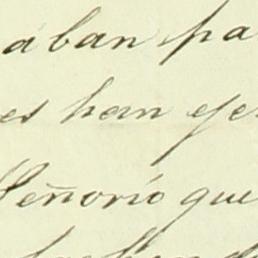 aban pa
es han eje
Señorio que